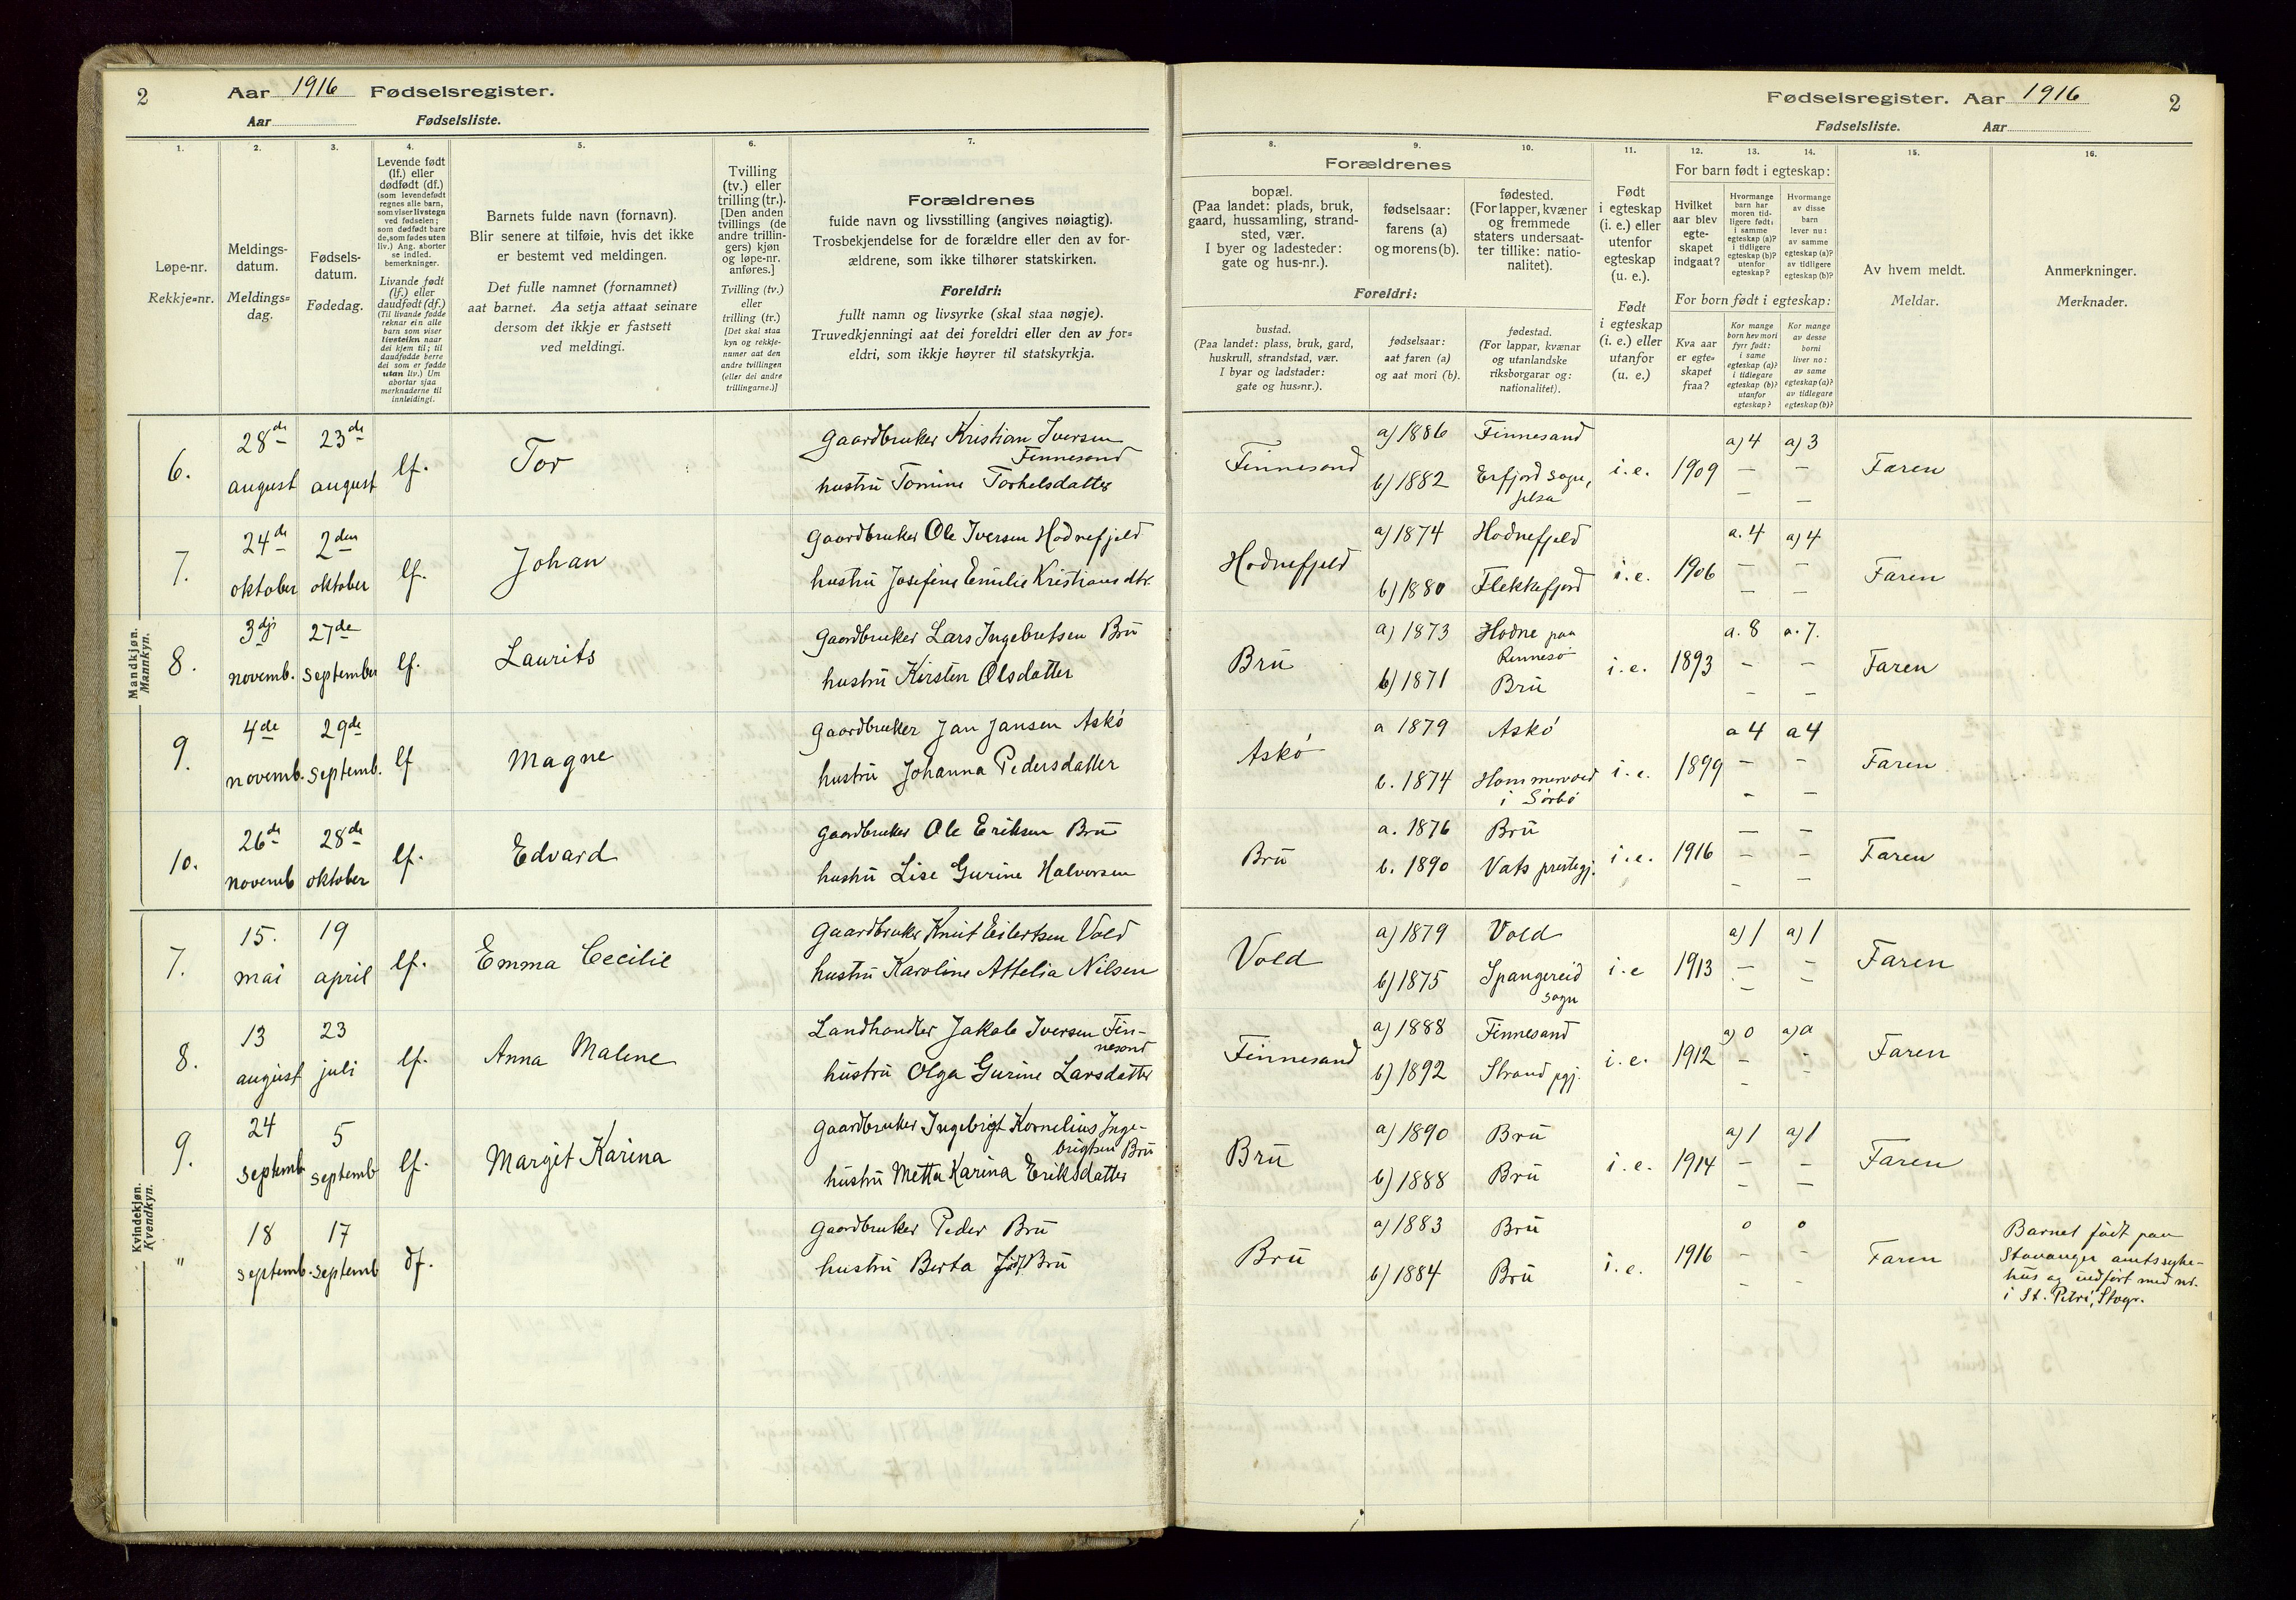 2 Aar 1916 Fødselsregister.
Aar Fødselsliste.
Fødselsregister. Aar 1916 2
Fødselsliste. Aar
1. 2. 3. 4. 5. 6. 7.
Løpe-nr.
Rekkje=nr.
Meldings-
datum.
Meldings=
dag.
Fødsels-
datum.
Fødedag.
Levende født
(lf.) eller
dødfødt (df.)
(som levendefødt
regnes alle barn,
som viser livstegn
ved fødselen;
som dødfødt bare
de, som fødes uten
liv.) Ang. aborter
se indled.
bemerkninger.
Livande født
(lf.) eller
daudfødt (df.)
(Til livande fødde
reknar ein alle
barn som viser
livsteikn naar
dei kjem til; til
daudfødde berre
dei som er fødde
utan liv.) Um
abortar sjaa
merknaderne til
innleidingi.
Barnets fulde navn (fornavn).
Blir senere at tilføie, hvis det ikke
er bestemt ved meldingen.
Det fulle namnet (fornamnet)
aat barnet. Aa setja attaat seinare
dersom det ikkje er fastsett
ved meldingi.
Tvilling
(tv.) eller
trilling (tr.).
[Den anden
tvillings (de
andre trillin-
gers) kjøn
og løpe-nr.
anføres.]
Tvilling (tv.)
eller
trilling (tr.)
[Det skal staa
kyn og rekkje-
numer aat den
andre tvillingen
(eller dei andre
trillingarne.)]
Forældrenes
fulde navn og livsstilling (angives nøiagtig).
Trosbekjendelse for de forældre eller den av for-
ældrene, som ikke tilhører statskirken.
Foreldri:
fullt namn og livsyrke (skal staa nøgje).
Truvedkjenningi aat dei foreldri eller den av for=
eldri, som ikkje høyrer til statskyrkja.
8. 9. 10. 11. 12. 13. 14. 15. 16.
Forældrenes
bopæl.
(Paa landet: plads, bruk,
gaard, hussamling, strand-
sted, vær.
I byer og ladesteder:
gate og hus-nr.).
fødselsaar:
farens (a)
og morens (b).
fødested.
(For lapper, kvæner
og fremmede
staters undersaat-
ter tillike: natio-
nalitet).
Foreldri:
bustad.
(Paa landet: plass, bruk, gard,
huskrull, strandstad, vær.
I byar og ladstader:
gate og hus=nr.).
fødselsaar:
aat faren (a)
og aat mori (b).
fødestad.
(For lappar, kvænar
og utanlandske
riksborgarar og:
nationalitet).
Født
i egteskap
(i. e.) eller
utenfor
egteskap
(u. e.).
Født
i egteskap
(i. e.) eller
utanfor
(u. e.)
For barn født i egteskap:
Hvilket
aar blev
egte-
skapet
indgaat?
Hvormange
barn har
moren tid-
ligere født:
i samme
egteskap (a)?
i tidligere
egteskap (b)?
utenfor
egteskap?
Hvormange
av disse
barn
lever nu:
av samme
egteskap (a)?
av tidligere
egteskap (b)?
For born født i egteskap:
Kva aar
er egte=
skapet
fraa?
Kor mange
born hev mori
fyrr født:
i same
egteskap (a)?
i tidlegare
egteskap (b)?
utanfor
egteskap?
Kor mange
av desse
borni
liver no:
av same
egteskap (a)?
av tidlegare
egteskap (b)?
Av hvem meldt.
Meldar.
Anmerkninger.
Merknader.
Mandkjøn.
Mannkyn.
6. 28de august 23de august lf. Tor
Gaardbruker Kristian Iversen
Finnesand
hustru Tomine Torkelsdatter
Finnesand a) 1886 Finnesand i. e. 1909 a) 4 a) 3 Faren
b) 1882 Erfjord sogn,
Jelsa
— —
— —
7. 24de oktober 2den oktober lf. Johan
Gaardbruker Ole Iversen Hodnefjeld
hustru Josefine Emilie Kristiansdtr.
Hodnefjeld a) 1874 Hodnefjeld i. e. 1906 a. 4 a) 4 Faren
b) 1880 Flekkefjord
— —
— —
8. 3dje novemb. 27de september lf. Laurits
Gaardbruker Lars Ingebretsen Brü
hustrü Kirsten Olsdatter
Brü a) 1873 Hodne paa
Rennesö
i. e. 1893 a. 8 a. 7. Faren
b) 1871 Brü
— —
— —
9. 4de novemb. 29de septemb. lf Magne
Gaardbruker Jan Jansen Askö
hustrü Johanna Pedersdatter
Askö a 1879 Askö i. e. 1899 a 4 a 4 Faren
b. 1874 Hammervold
i Sörbö
— —
— —
10. 26de novemb 28de oktober lf. Edvard
Gaardbruker Ole Eriksen Brü
hustrü Lise Gurine Halvorsen
Brü a. 1876 Brü i. e. 1916 — Faren
b. 1890 Vats prestegj.
— —
— —
Kvindekjøn.
Kvendkyn.
7. 15. mai 19 april lf. Emma Cecilie
Gaardbruker Knut Eilertsen Vold
hustrü Karoline Attelia Nilsen
Vold a) 1879 Vold i. e 1913 a) 1 a) 1 Faren
b) 1875 Spangereid
sogn
— —
— —
8. 13 august 23 juli lf. Anna Malene
Landhandler Jakob Iversen Fin-
nesand
hüstrü Olga Gurine Larsdatter
Finnesand a) 1888 Finnesand i. e. 1912 a) 0 a) 0 Faren
b) 1892 Strand pgj.
— —
— —
9. 24 septemb 5 septemb lf. Margit Karina
Gaardbruker Ingebrigt Kornelius Inge-
brigtsen Brü
hüstrü Metta Karina Eriksdatter
Brü a) 1890 Brü i. e. 1914 a) 1 a) 1 Faren
b) 1888 Brü
— —
— —
" 18 septemb. 17 septemb df.
Gaardbruker Peder Brü
hustrü Berta född Brü
Brü a) 1883 Brü i. e. 1916 0 0 Faren
b) 1884 Brü
— —
— —
Barnet födt paa
Stavanger amtssyke-
hüs og indfört med nr.
i St. Petri, Stvgr.